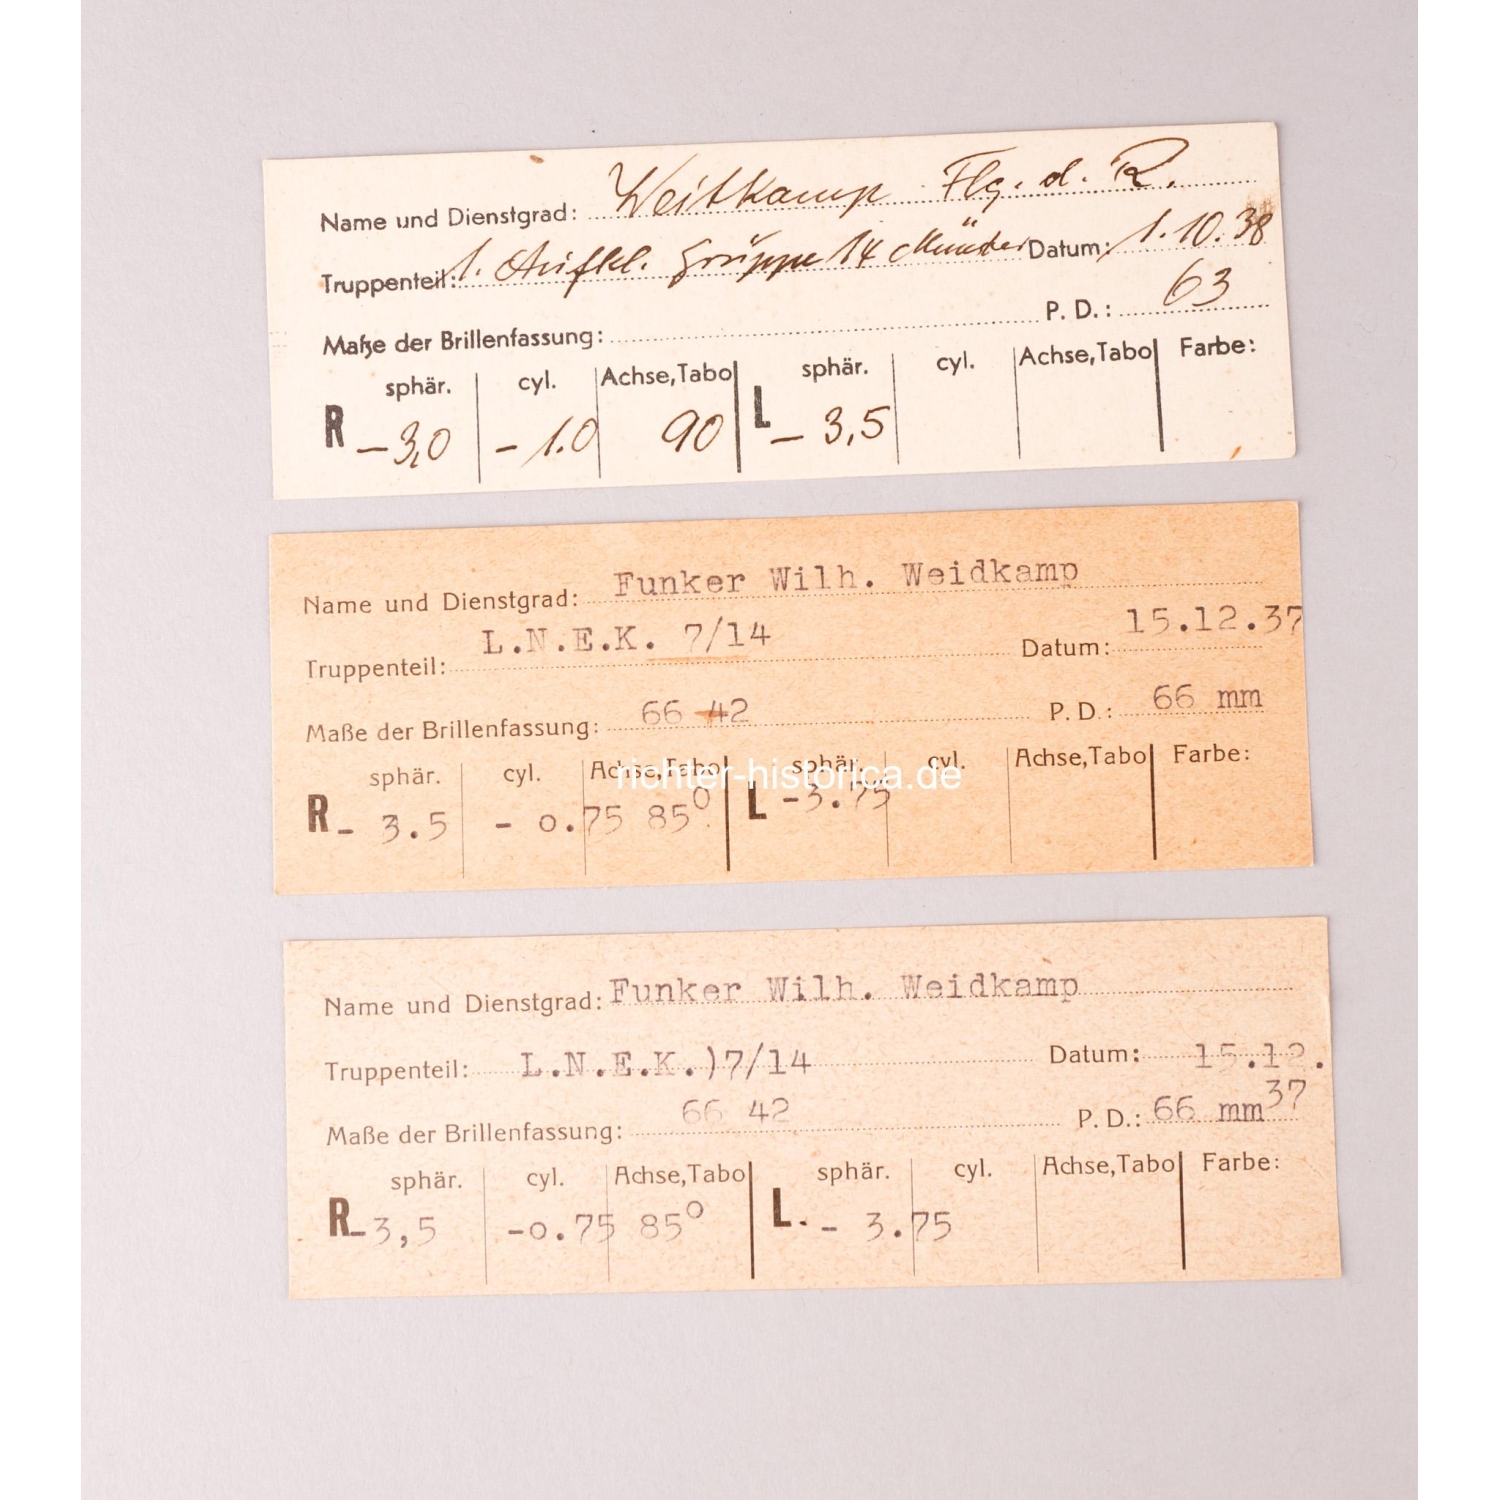 Name und Dienstgrad: Weitkamp Flg. d. R.
Truppenteil: 1. Aufkl. Grüppe 14 Münster Datum: 1.10.38
Maße der Brillenfassung: P. D.: 63
sphär. cyl. Achse,Tabo sphär. cyl. Achse,Tabo Farbe:
R -3,0 -1.0 90 L -3,5
Name und Dienstgrad: Funker Wilh. Weidkamp
Truppenteil: L.N.E.K. 7/14 Datum: 15.12.37
Maße der Brillenfassung: 66 42 P. D.: 66 mm
sphär. cyl. Achse,Tabo sphär. cyl. Achse,Tabo Farbe:
richter-historica.de
R - 3.5 - 0.75 85° L -3.75
Name und Dienstgrad: Funker Wilh. Weidkamp
Truppenteil: L.N.E.K.)7/14 Datum: 15.12.
37
Maße der Brillenfassung: 66 42 P. D.: 66 mm
sphär. cyl. Achse,Tabo sphär. cyl. Achse,Tabo Farbe:
R -3,5 -0.75 85° L. - 3.75